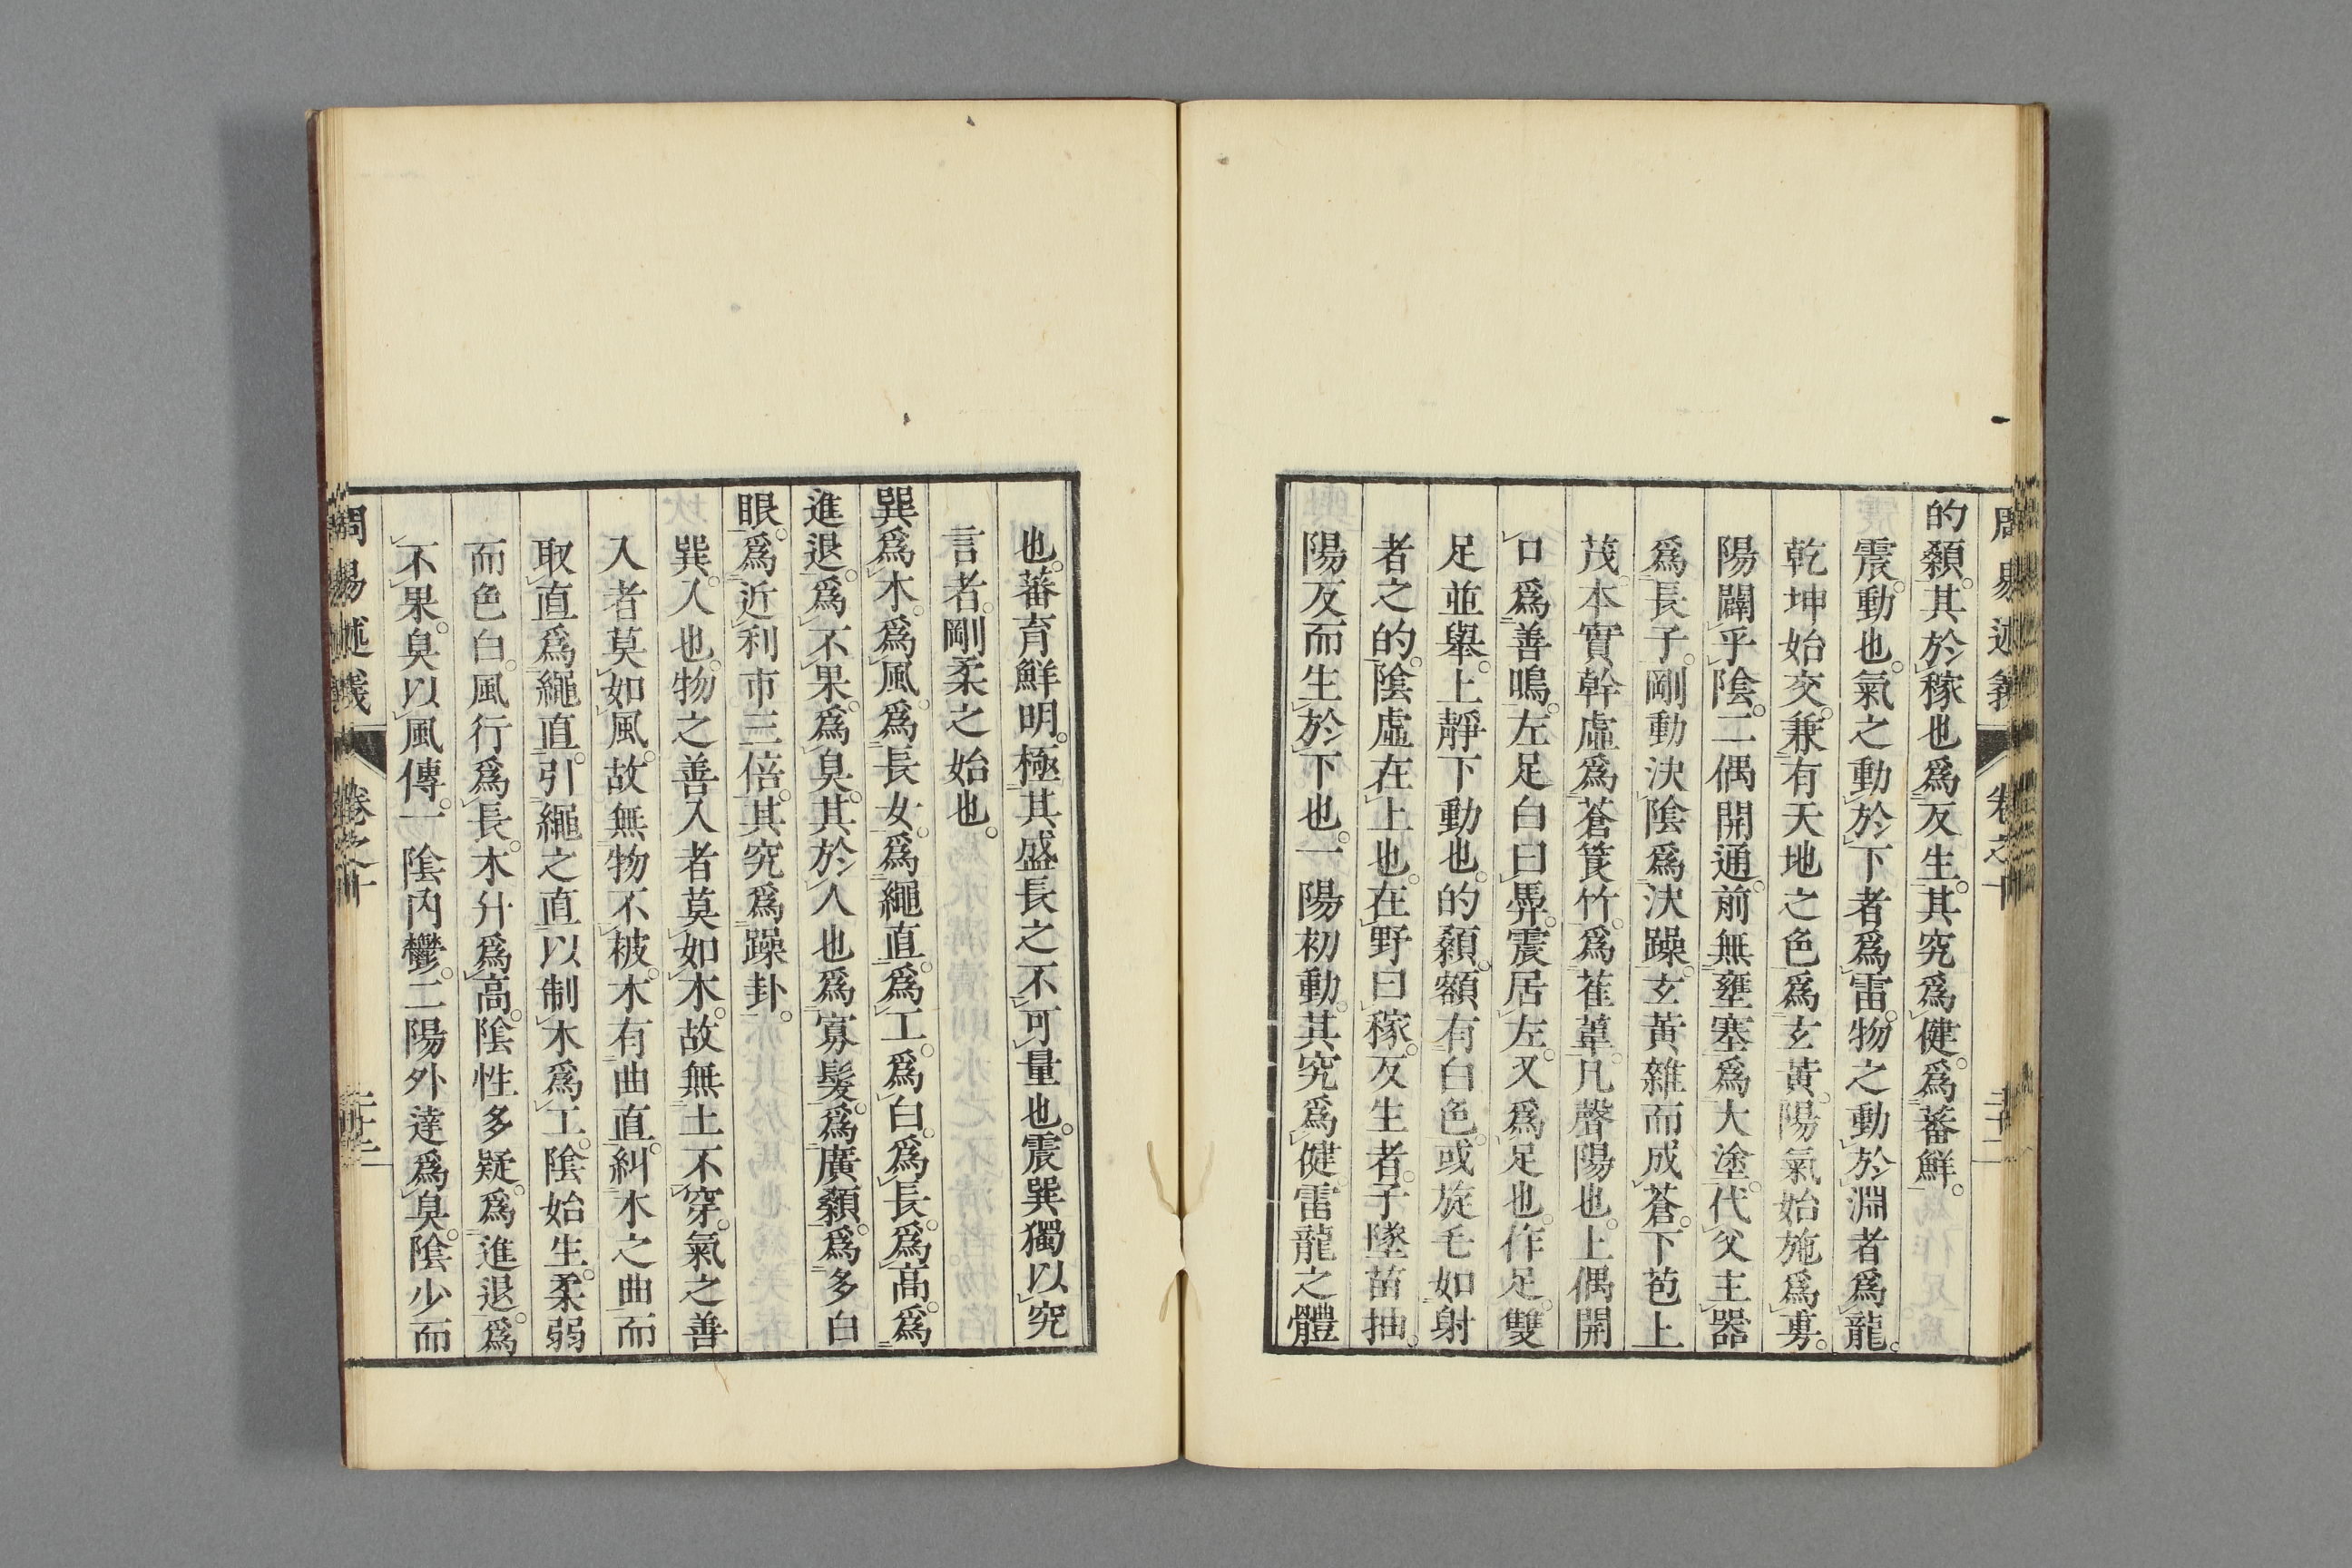 周易述義 卷之十
的顙。其於稼也爲反生。其究爲健。爲蕃鮮。
震。動也。氣之動於下者爲雷。物之動於淵者爲龍。
乾坤始交。兼有天地之色爲玄黃。陽氣始施爲旉。
陽闢乎陰。二偶開通。前無壅塞爲大塗。代父主器
爲長子。剛動決陰爲決躁。玄黃雜而成蒼。下苞上
茂。本實幹虛爲蒼筤竹。爲萑葦。凡聲陽也。上偶開
口爲善鳴。左足白曰馵。震居左。又爲足也。作足。雙
足並舉。上靜下動也。的顙。額有白色。或旋毛如射
者之的。陰虛在上也。在野曰稼。反生者。子墜苗抽。
陽反而生於下也。一陽初動。其究爲健。雷龍之體
也。蕃育鮮明。極其盛長之不可量也。震巽獨以究
言者。剛柔之始也。
巽爲木。爲風。爲長女。爲繩直。爲工。爲白。爲長。爲高。爲
進退。爲不果。爲臭。其於人也爲寡髮。爲廣顙。爲多白
眼。爲近利市三倍。其究爲躁卦。
巽。入也。物之善入者莫如木。故無土不穿。氣之善
入者莫如風。故無物不被。木有曲直。糾木之曲而
取直爲繩直。引繩之直以制木爲工。陰始生。柔弱
而色白。風行爲長。木升爲高。陰性多疑。爲進退。爲
不果。臭以風傳。一陰內鬱。二陽外達爲臭。陰少而
周易述義 卷之十